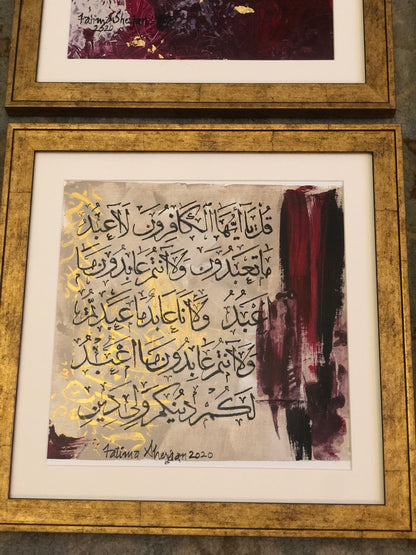 Fatima Sheraan
2020
قُلْ يَا أَيُّهَا الْكَافِرُونَ لَا أَعْبُدُ
مَا تَعْبُدُونَ وَلَا أَنْتُمْ عَابِدُونَ مَا
أَعْبُدُ وَلَا أَنَا عَابِدٌ مَا عَبَدْتُمْ
وَلَا أَنْتُمْ عَابِدُونَ مَا أَعْبُدُ
لَكُمْ دِينُكُمْ وَلِيَ دِينِ
Fatima Sheraan 2020